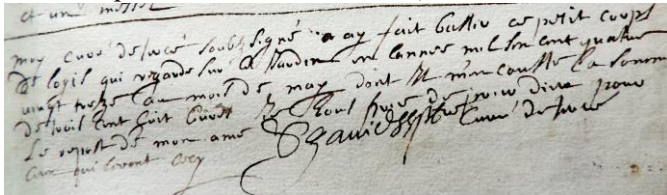 et un
moy curé de sucé soubz signé ay fait bastir ce petit corps
de logis qui regarde sur le Jardin en lannee mil six cent quatre
vingt treze au mois de may dont il men couste la somme
de huit cent huit livres Je prie de prier dieu pour
Le repost de mon ame
curé de sucé
ceux qui liront cecy